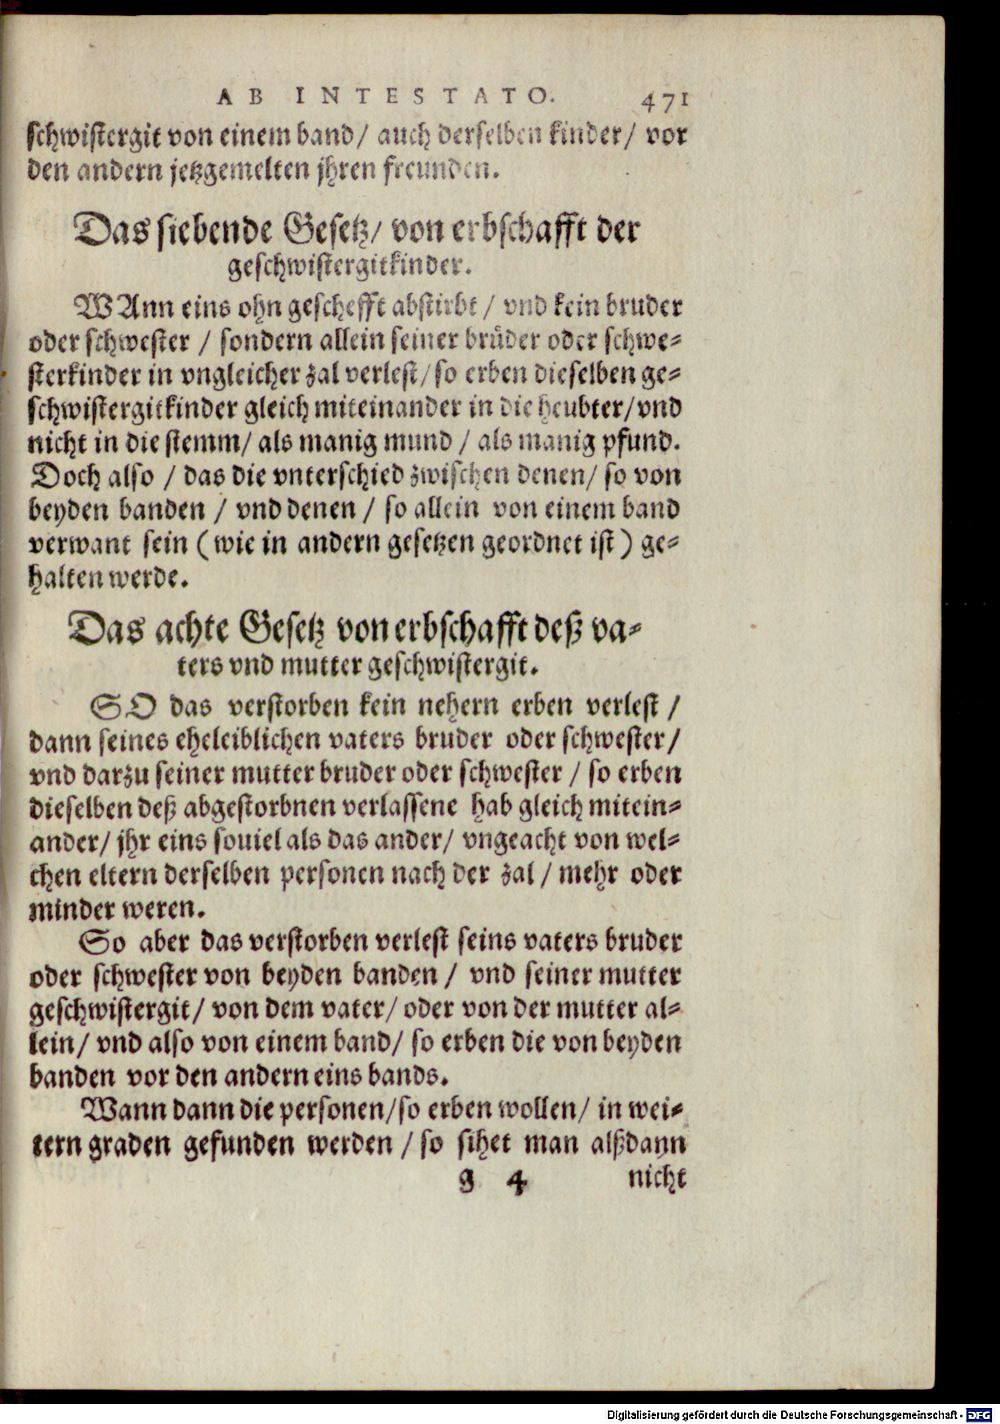 AB INTESTATO. 471
schwistergit von einem band/ auch derselben kinder/ vor
den andern jetzgemelten jhren freunden.
Das siebende Gesetz/ von erbschafft der
geschwistergitkinder.
WAnn eins ohn geschefft abstirbt / vnd kein bruder
oder schwester / sondern allein seiner brůder oder schwe-
sterkinder in vngleicher zal verlest/ so erben dieselben ge-
schwistergitkinder gleich miteinander in die heubter/ vnd
nicht in die stemm/ als manig mund / als manig pfund.
Doch also / das die vnterschied zwischen denen/ so von
beyden banden / vnd denen / so allein von einem band
verwant sein (wie in andern gesetzen geordnet ist) ge-
halten werde.
Das achte Gesetz von erbschafft deß va-
ters vnd mutter geschwistergit.
SO das verstorben kein nehern erben verlest /
dann seines eheleiblichen vaters bruder oder schwester/
vnd darzu seiner mutter bruder oder schwester / so erben
dieselben deß abgestorbnen verlassene hab gleich mitein-
ander/ jhr eins souiel als das ander/ vngeacht von wel-
chen eltern derselben personen nach der zal / mehr oder
minder weren.
So aber das verstorben verlest seins vaters bruder
oder schwester von beyden banden / vnd seiner mutter
geschwistergit/ von dem vater/ oder von der mutter al-
lein/ vnd also von einem band/ so erben die von beyden
banden vor den andern eins bands.
Wann dann die personen/ so erben wollen/ in wei-
tern graden gefunden werden / so sihet man alßdann
g 4 nicht
Digitalisierung gefördert durch die Deutsche Forschungsgemeinschaft - DFG